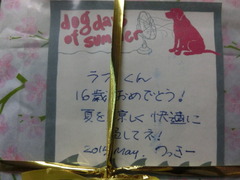 dog days
of summer
ラブくん
16歳おめでとう！
夏を楽しく快適に
してネ！
2015 May.